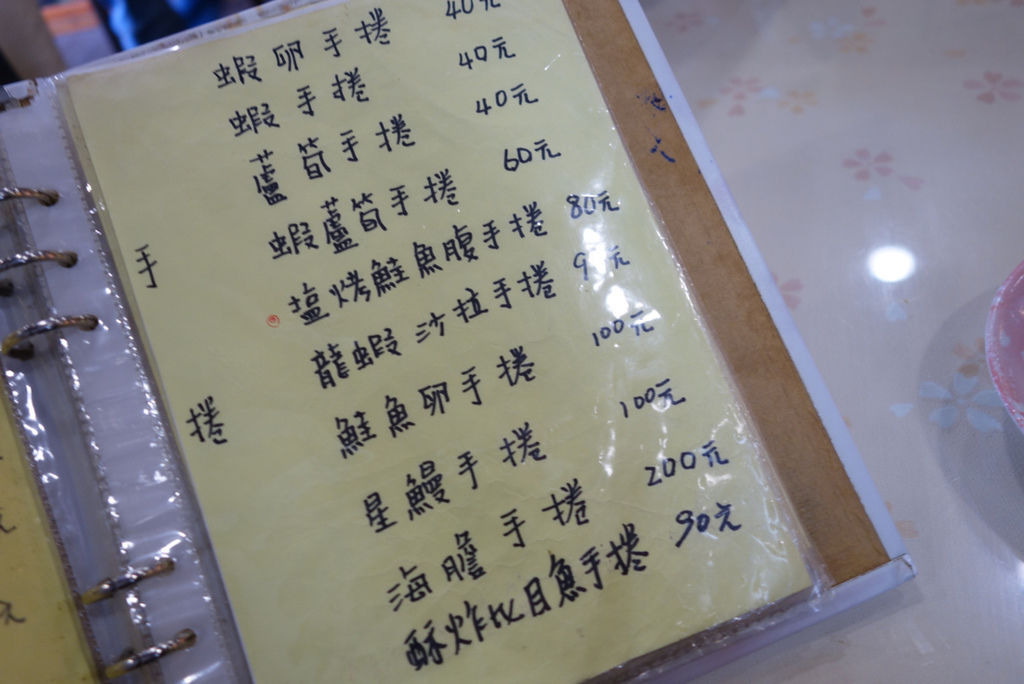 蝦卵手捲 40元
蝦手捲 40元
蘆筍手捲 40元
蝦蘆筍手捲 60元
塩烤鮭魚腹手捲 80元
龍蝦沙拉手捲 元
鮭魚卵手捲 100元
星鰻手捲 100元
海膽手捲 200元
酥炸比目魚手捲 90元
手捲
元